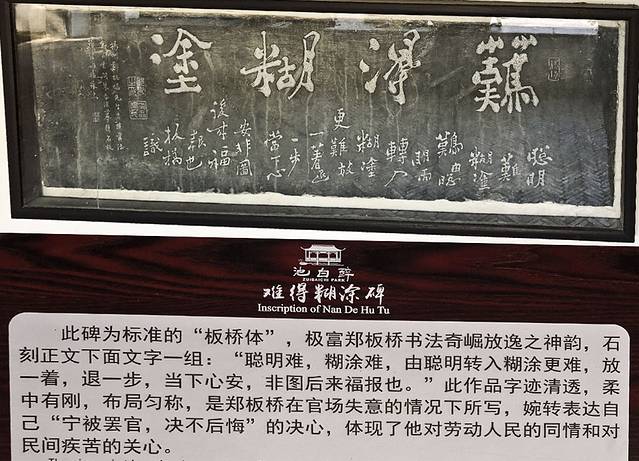 難得糊塗
聰明
難
糊塗
難由聰
明而
轉入
糊塗
更難放
一著退
一步
當下心
安非圖
後來福
報也
板橋
識
醉白池
ZUIBAICHI PARK
难得糊涂碑
Inscription of Nan De Hu Tu
此碑为标准的“板桥体”，极富郑板桥书法奇崛放逸之神韵，石
刻正文下面文字一组：“聪明难，糊涂难，由聪明转入糊涂更难，放
一着，退一步，当下心安，非图后来福报也。”此作品字迹清透，柔
中有刚，布局匀称，是郑板桥在官场失意的情况下所写，婉转表达自
己“宁被罢官，决不后悔”的决心，体现了他对劳动人民的同情和对
民间疾苦的关心。